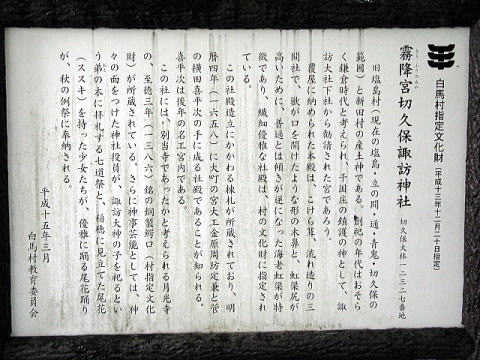 白馬村指定文化財（平成十三年十二月二十日指定）
霧降宮切久保諏訪神社
切久保大林一二三二七番地
旧塩島村（現在の塩島・立の間・通・青鬼・切久保の
範囲）と新田村の産土神である。創祀の年代はおそら
く鎌倉時代と考えられ、千国庄の鎮護の神として、諏
訪大社下社から勧請された宮であろう。
覆屋に納められた本殿は、こけら葺、流れ造りの三
間社で、獣が口を開けたような形の木鼻と、虹梁尻が
高いために、普通とは傾きが逆になった海老虹梁が特
徴であり、繊細優雅な社殿は、村の文化財に指定され
ている。
この社殿造立にかかわる棟札が所蔵されており、明
暦四年（一六五八）に大町の宮大工金原周防定兼と菅
の横田喜平次の手に成る社殿であることが知られる。
喜平次は後年の名工宮内である。
この社には、別当寺であったかと考えられる月光寺
の、至徳三年（一三八六）銘の銅製鰐口（村指定文化
財）が所蔵されている。さらに神事芸能としては、神
々の面をつけた神社役員が、諏訪大神の子を祀るとい
う弟の木に拝礼する七道祭と、稲穂に見立てた尾花
（ススキ）を持った少女たちが、優雅に踊る尾花踊り
が、秋の例祭に奉納される。
平成十五年三月
白馬村教育委員会